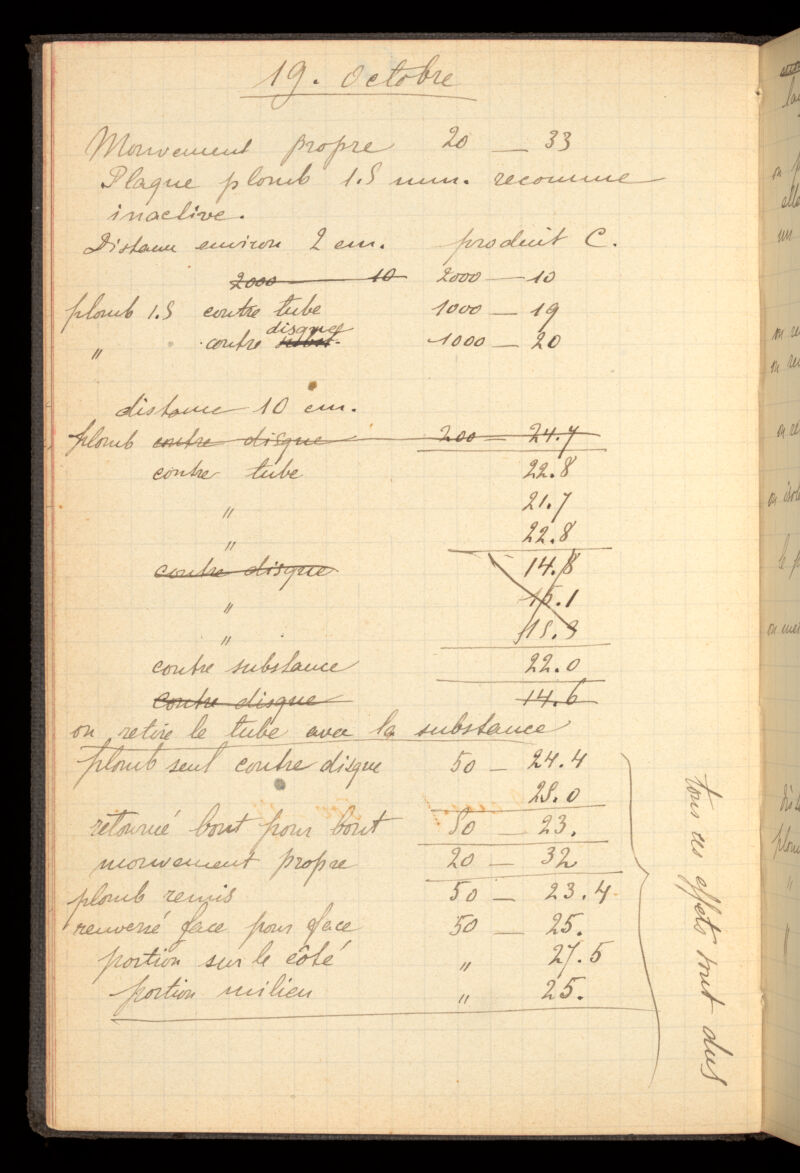 19. Octobre
Mouvement propre 20 — 33
Plaque plomb 1.5 mm. reconnue
inactive.
Distance environ 2 cm. produit C.
2000 — 10 2000 — 10
plomb 1.5 contre tube 1000 — 19
" contre disque 1000 — 20
distance 10 cm.
plomb contre disque 200 — 24.7
contre tube 22.8
" 21.7
" 22.8
contre disque 14.8
" 15.1
" 15.9
contre substance 22.0
contre disque 14.6
on retire le tube avec la substance
plomb seul contre disque 50 — 24.4
25.0
retourné bout pour bout 50 — 23.
mouvement propre 20 — 32
plomb remis 50 — 23.4
renversé face pour face 50 — 25.
portion sur le côté " 27.5
portion milieu " 25.
tous ces effets sont dus